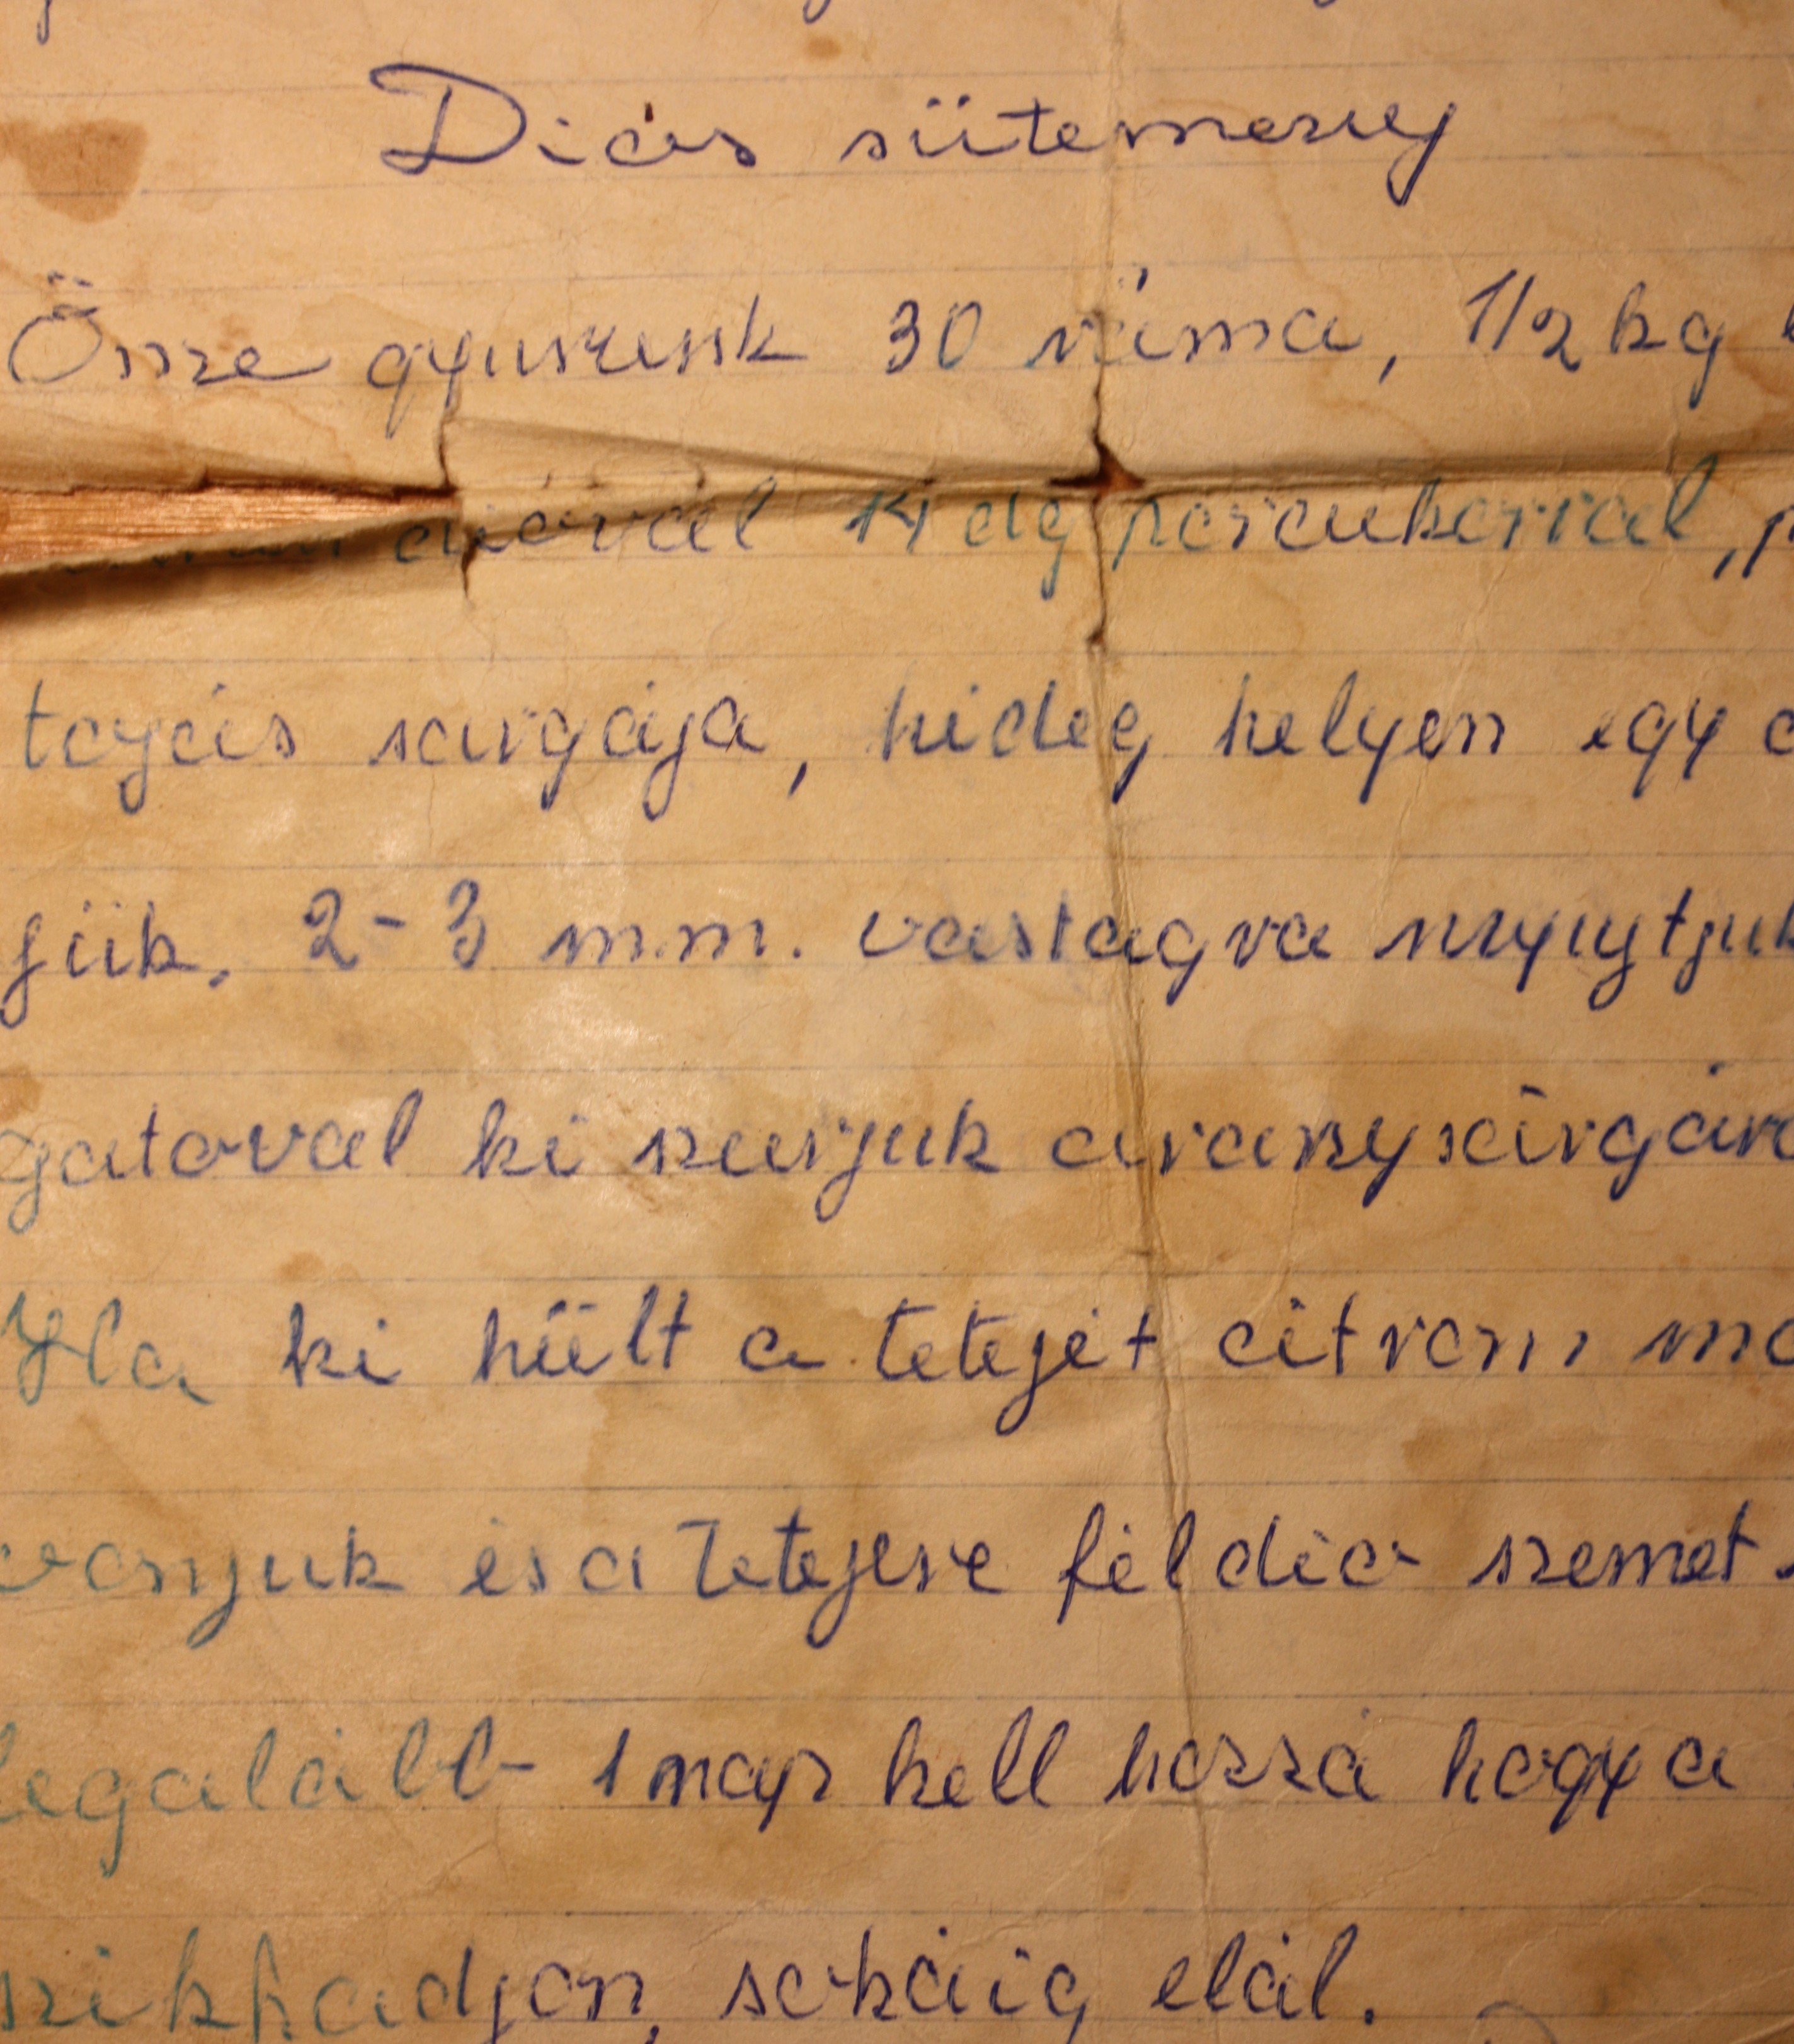 Diós sütemeny
Össze gyurunk 30 ráma, 1/2 kg
dióval 14 dg porcukorral,
tojás sárgája, hideg helyen egy
jük. 2-3 m.m. vastagra nyujtjuk
gatoval ki szurjuk aranysárgára
Ha ki hült a tetejét citrom
vonjuk és a tetejere fél dio szemet
legalább 1 nap kell hozzá hogy a
szikkadjon, sokáig eláll.